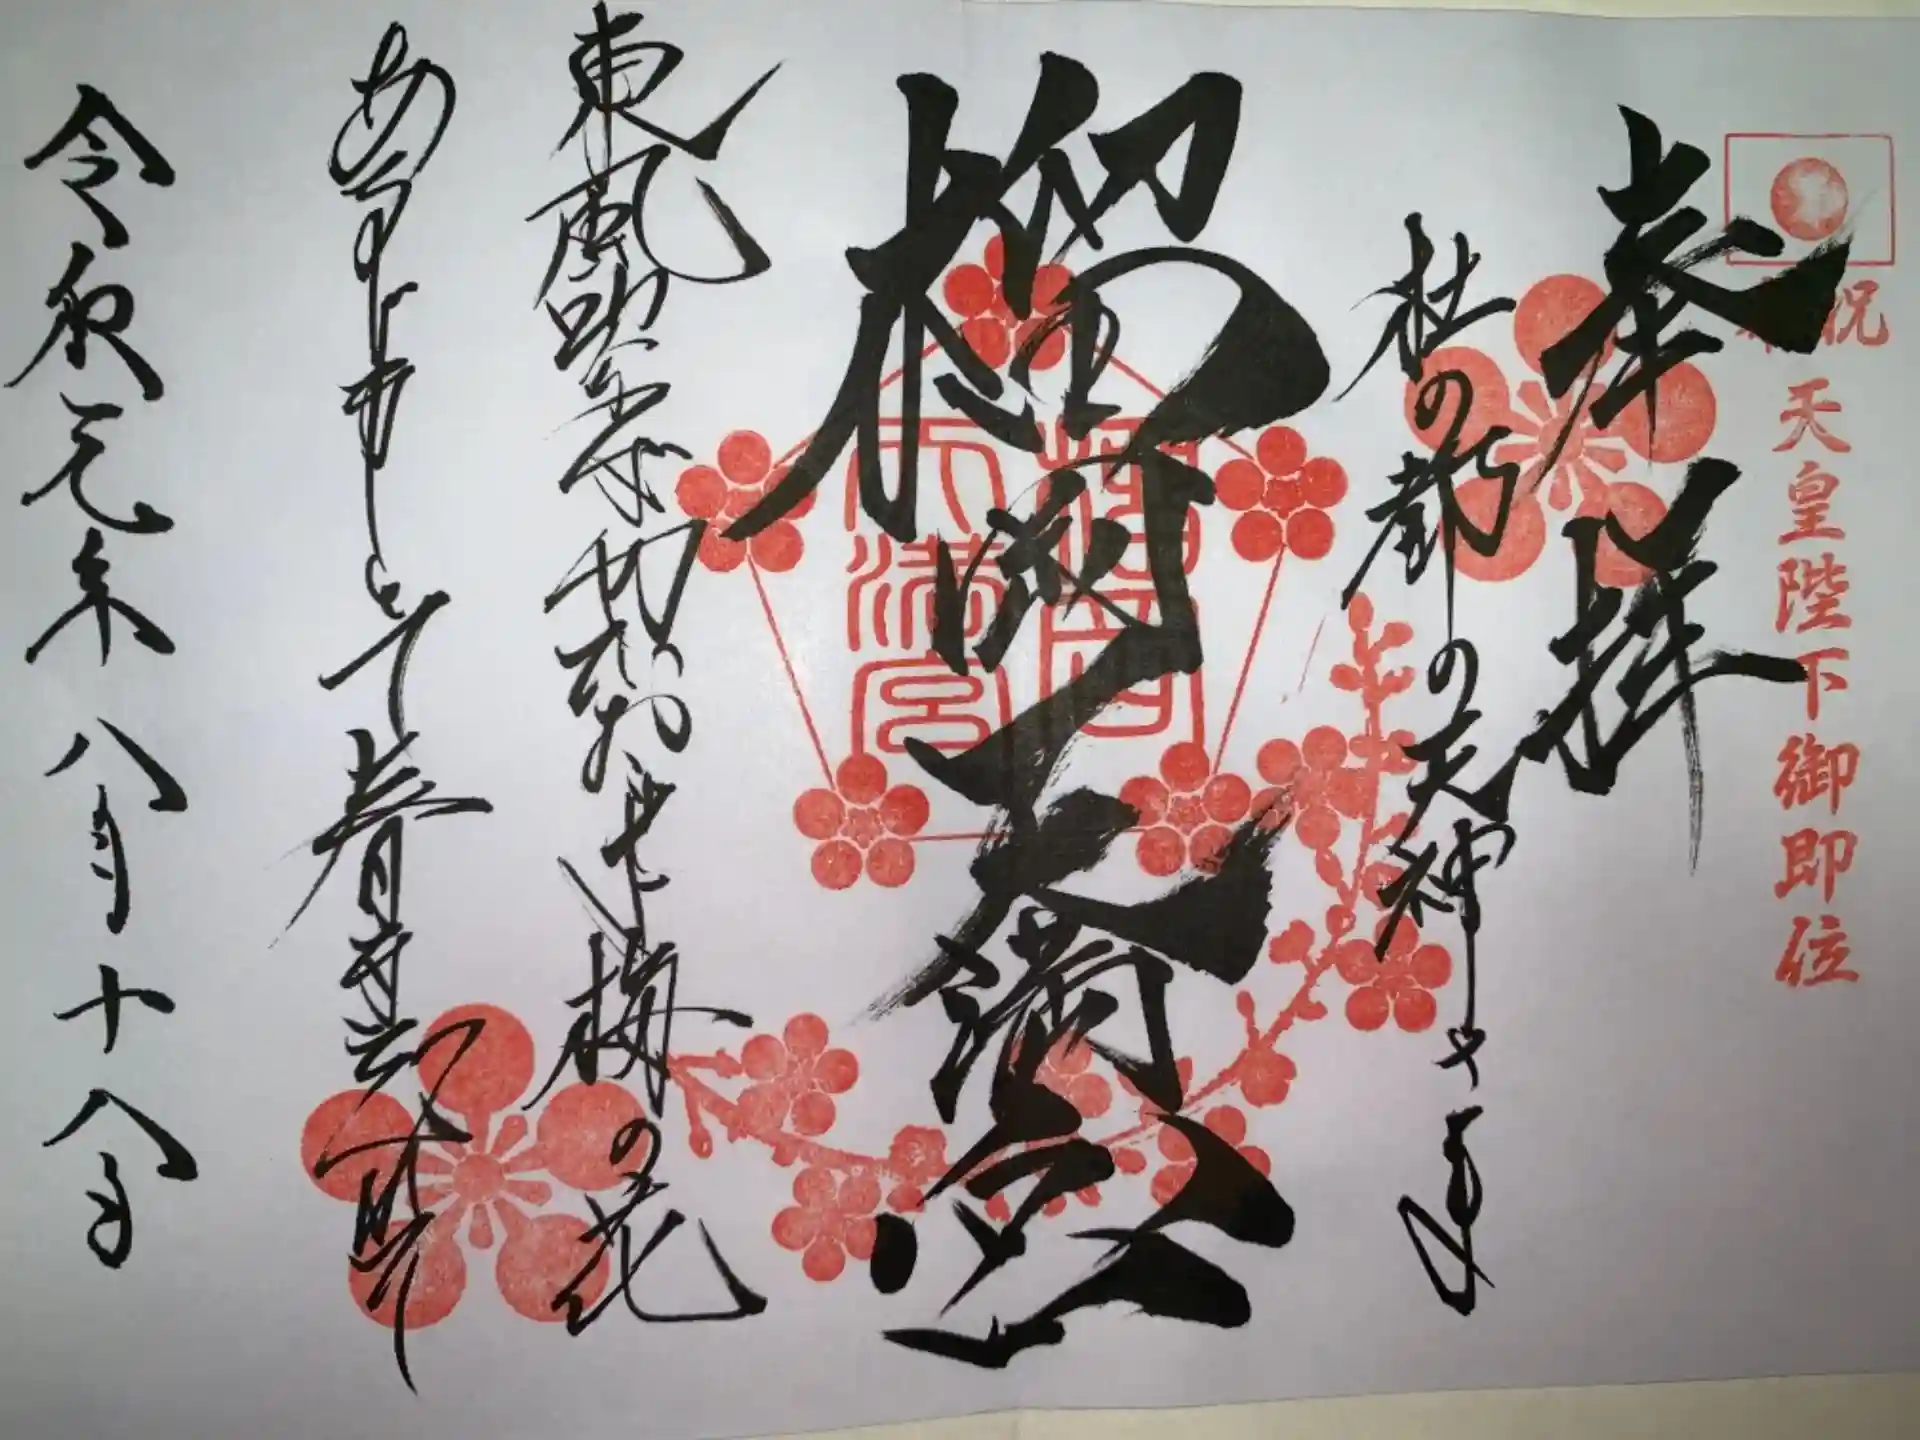 奉祝
天皇陛下御即位
奉拝
杜の都の天神さま
榴岡天満宮
榴岡
天満宮
東風吹かば匂ひおこせよ梅の花
あるじなしとて春
令和元年八月十八日